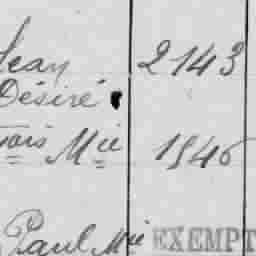 Jean 2143
Désiré
çois Mie 1546
Paul Mie EXEMPT